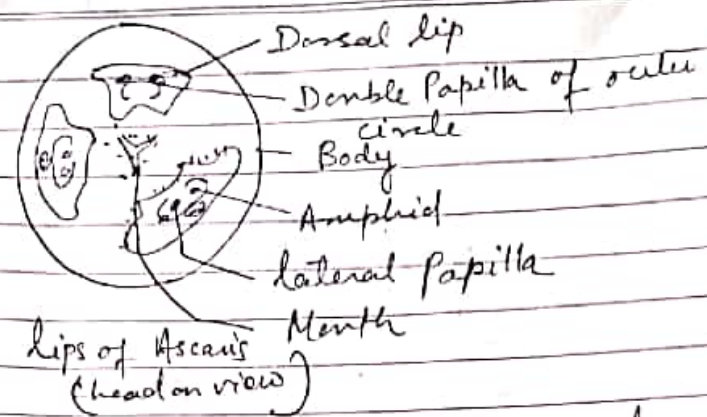 Dorsal lip
Double Papilla of outer
circle
Body
Amphid
lateral Papilla
Mouth
Lips of Ascaris
(head on view)